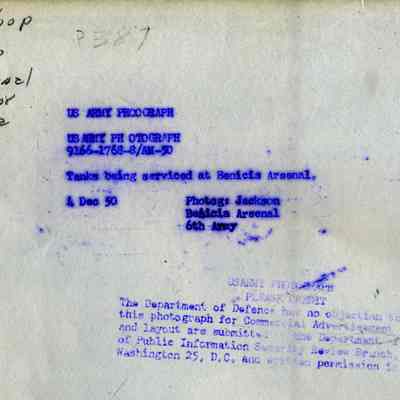 P387
US ARMY PHOOGRAPH
US ARMY PH OTOGRAPH
9166-1768-8/AM-50
Tanks being serviced at Benicia Arsenal.
4 Dec 50 Photog: Jackson
Benicia Arsenal
6th Army
US ARMY PHOTOGRAPH
PLEASE CREDIT
The Department of Defense has no objection to
this photograph for Commercial Advertisement
and layout are submitte the Department of
of Public Information Security Review Branch,
Washington 25, D.C. and written permission is